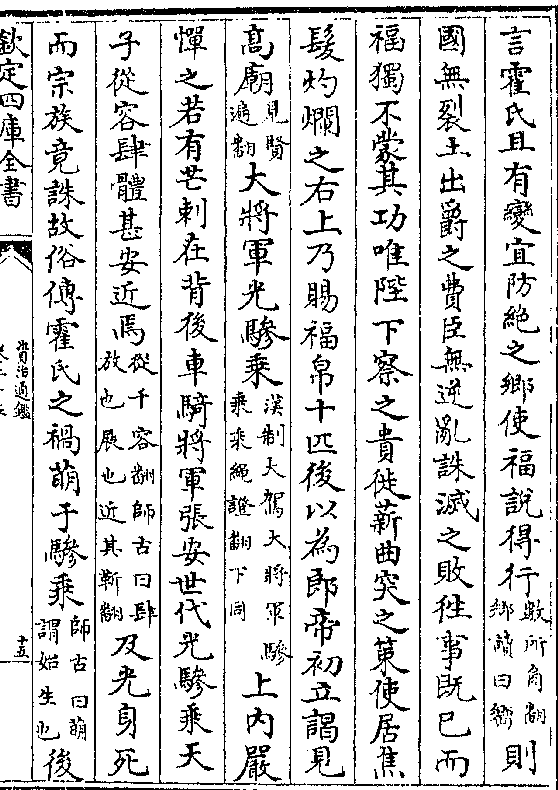 言霍氏且有變宜防絶之鄉使福說得行數所角翻鄉讀曰嚮則
國無裂土出爵之費臣無逆亂誅滅之敗徃事既已而
福獨不蒙其功唯陛下察之貴徙薪曲突之䇿使居焦
髮灼爛之右上乃賜福帛十匹後以為郎帝初立謁見
高廟見賢遍翻大將軍光驂乗漢制大駕大將軍驂乗乘繩證翻下同上内嚴
憚之若有芒刺在背後車騎將軍張安世代光驂乗天
子從容肆體甚安近焉從千容翻師古曰肆放也展也近其靳翻及光身死
而宗族竟誅故俗傳霍氏之禍萌于驂乗師古曰萌謂始生也後
欽定四庫全書
資治通鑑
十五